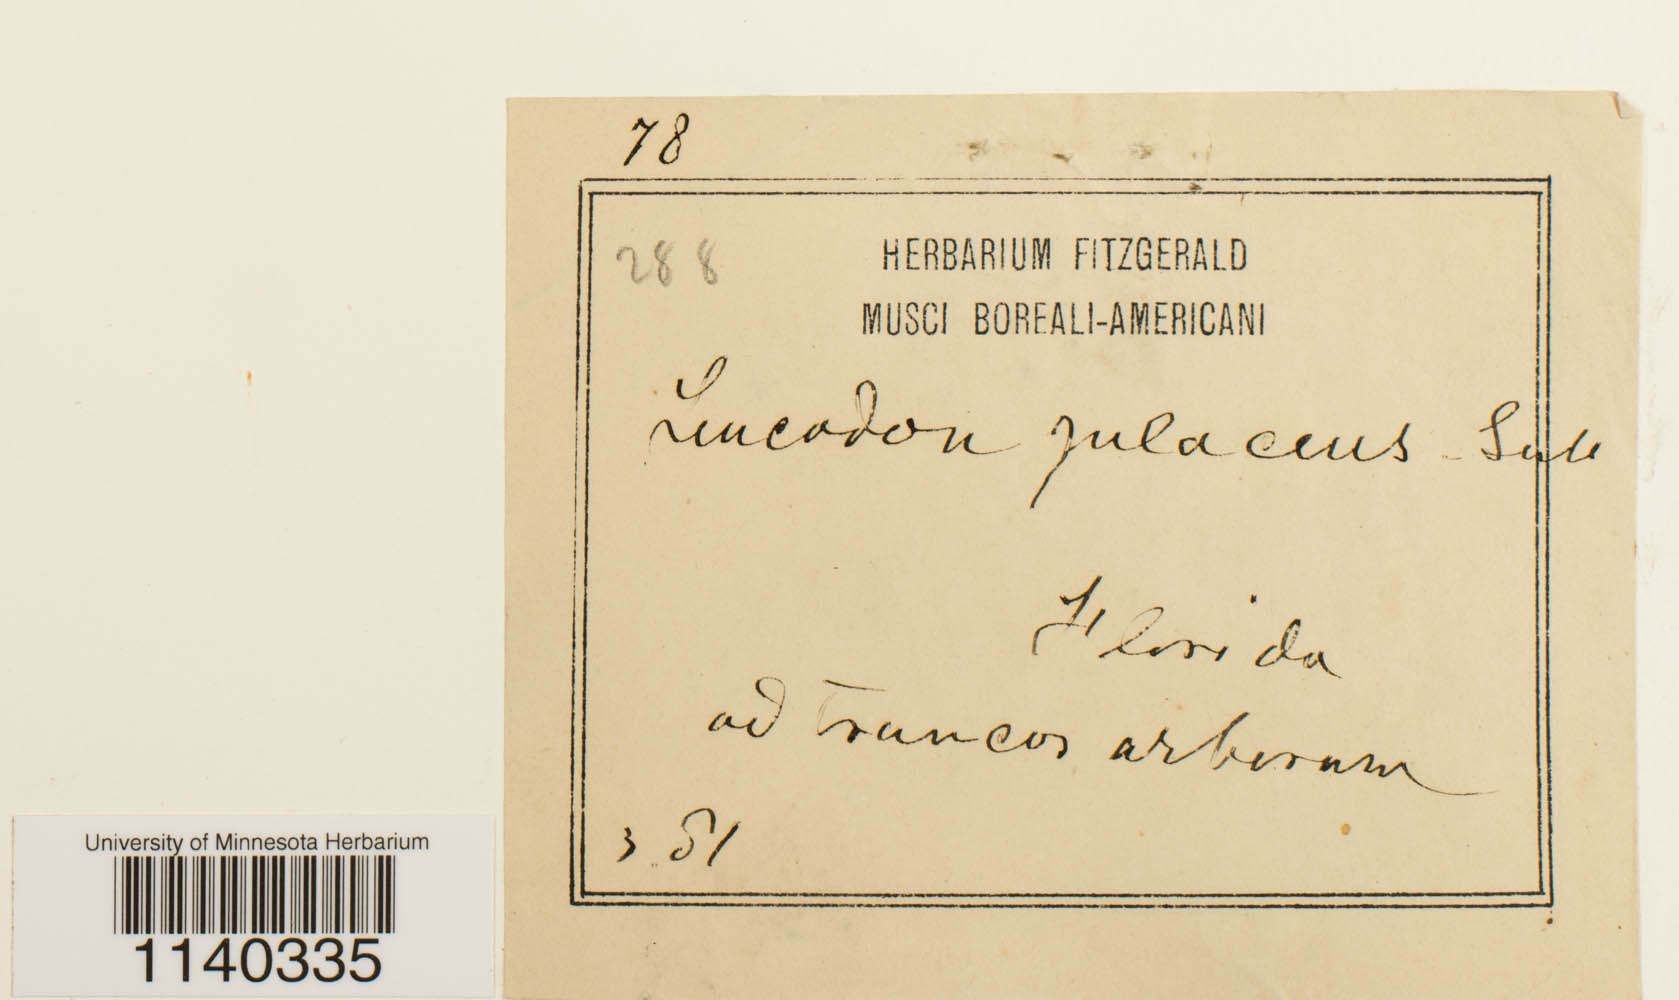 78
288
HERBARIUM FITZGERALD
MUSCI BOREALI-AMERICANI
Leucodon julaceus - Sull
Florida
ad truncos arborum
3 81
University of Minnesota Herbarium
1140335